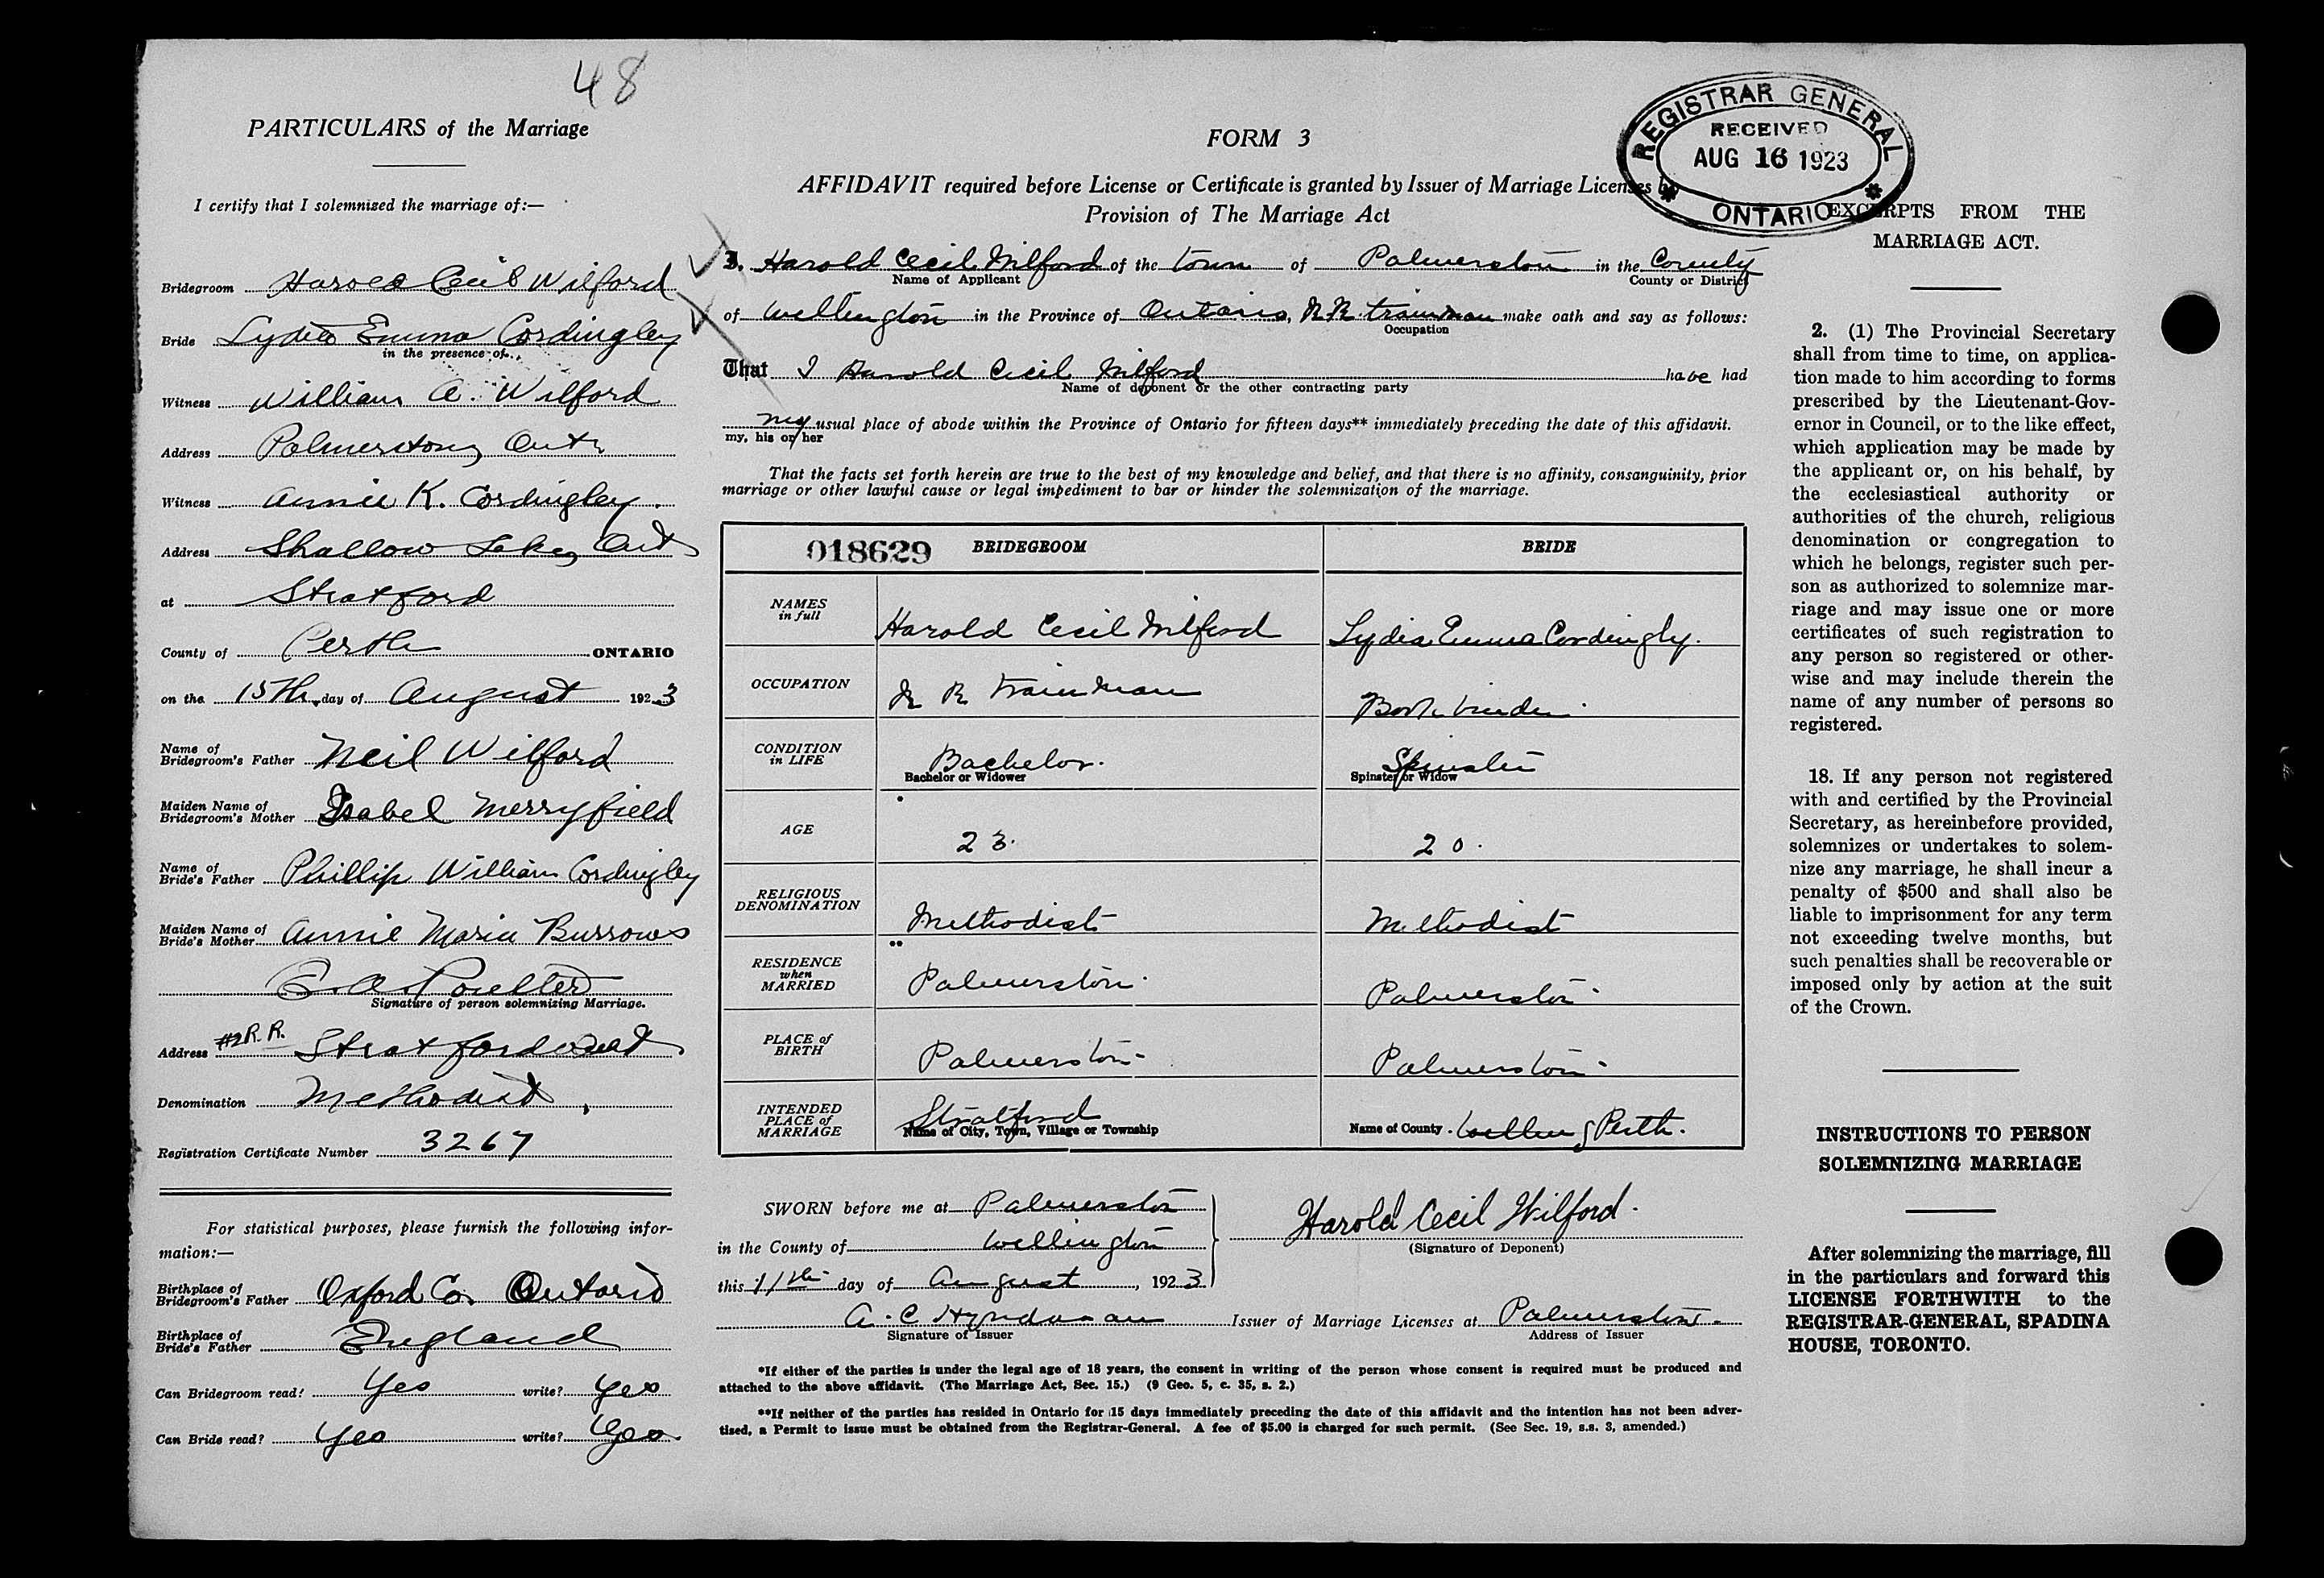 48
PARTICULARS of the Marriage
I certify that I solemnized the marriage of:—
Bridegroom Harold Cecil Wilford
Bride Lydia Emma Cordingley
in the presence of
Witness William A. Wilford
Address Palmerston, Ont
Witness Annie K. Cordingley.
Address Shallow Lake, Ont
at Stratford
County of Perth ONTARIO
on the 15th day of August 1923
Name of Bridegroom's Father Neil Wilford
Maiden Name of Bridegroom's Mother Isabel Merryfield
Name of Bride's Father Phillip William Cordingley
Maiden Name of Bride's Mother Annie Maria Burrows
Signature of person solemnizing Marriage.
Address #2 R.R. Stratford Ont
Denomination Methodist,
Registration Certificate Number 3267
For statistical purposes, please furnish the following infor-
mation:—
Birthplace of Bridegroom's Father Oxford Co. Ontario
Birthplace of Bride's Father England
Can Bridegroom read? Yes write? Yes
Can Bride read? Yes write? Yes
FORM 3
AFFIDAVIT required before License or Certificate is granted by Issuer of Marriage Licenses
Provision of The Marriage Act
I. Harold Cecil Wilford of the town of Palmerston in the County
Name of Applicant County or District
of Wellington in the Province of Ontario, RR trainman make oath and say as follows:
Occupation
That I Harold Cecil Wilford have had
Name of deponent or the other contracting party
my usual place of abode within the Province of Ontario for fifteen days** immediately preceding the date of this affidavit.
my, his or her
That the facts set forth herein are true to the best of my knowledge and belief, and that there is no affinity, consanguinity, prior
marriage or other lawful cause or legal impediment to bar or hinder the solemnization of the marriage.
018629 BRIDEGROOM BRIDE
NAMES in full Harold Cecil Wilford Lydia Emma Cordingly.
OCCUPATION R R trainman Book binder.
CONDITION in LIFE Bachelor. Spinster
Bachelor or Widower Spinster or Widow
AGE 23. 20.
RELIGIOUS DENOMINATION Methodist Methodist
RESIDENCE when MARRIED Palmerston. Palmerston.
PLACE of BIRTH Palmerston. Palmerston.
INTENDED PLACE of MARRIAGE Stratford Name of County. Welling Perth.
Name of City, Town, Village or Township
SWORN before me at Palmerston
in the County of Wellington
this 11th day of August, 1923
Harold Cecil Wilford.
(Signature of Deponent)
A. C Hyndman Issuer of Marriage Licenses at Palmerston.
Signature of Issuer Address of Issuer
*If either of the parties is under the legal age of 18 years, the consent in writing of the person whose consent is required must be produced and
attached to the above affidavit. (The Marriage Act, Sec. 15.) (9 Geo. 5, c. 35, s. 2.)
**If neither of the parties has resided in Ontario for 15 days immediately preceding the date of this affidavit and the intention has not been adver-
tised, a Permit to issue must be obtained from the Registrar-General. A fee of $5.00 is charged for such permit. (See Sec. 19, s.s. 3, amended.)
REGISTRAR GENERAL
RECEIVED
AUG 16 1923
ONTARIO
EXCERPTS FROM THE
MARRIAGE ACT.
2. (1) The Provincial Secretary
shall from time to time, on applica-
tion made to him according to forms
prescribed by the Lieutenant-Gov-
ernor in Council, or to the like effect,
which application may be made by
the applicant or, on his behalf, by
the ecclesiastical authority or
authorities of the church, religious
denomination or congregation to
which he belongs, register such per-
son as authorized to solemnize mar-
riage and may issue one or more
certificates of such registration to
any person so registered or other-
wise and may include therein the
name of any number of persons so
registered.
18. If any person not registered
with and certified by the Provincial
Secretary, as hereinbefore provided,
solemnizes or undertakes to solem-
nize any marriage, he shall incur a
penalty of $500 and shall also be
liable to imprisonment for any term
not exceeding twelve months, but
such penalties shall be recoverable or
imposed only by action at the suit
of the Crown.
INSTRUCTIONS TO PERSON
SOLEMNIZING MARRIAGE
After solemnizing the marriage, fill
in the particulars and forward this
LICENSE FORTHWITH to the
REGISTRAR-GENERAL, SPADINA
HOUSE, TORONTO.